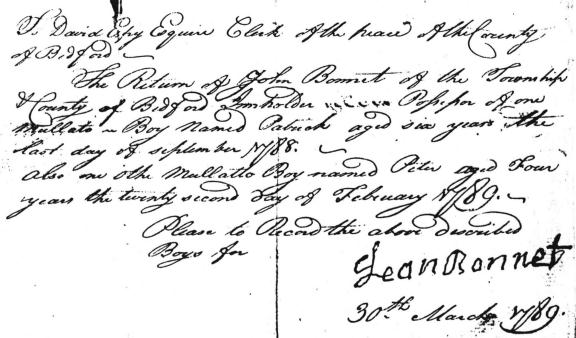 To David Espy Esquire Clerk of the peace of the County
of Bedford
The Return of John Bonnet of the Township
& County of Bedford Innholder Possessor of one
Mullato Boy Named Patrick aged six years the
last day of september 1788.
Also one othe Mullatto Boy named Peter aged Four
years the twenty second day of February 1789.
Please to Record the above described
Boys for
Jean Bonnet
30.th March 1789.